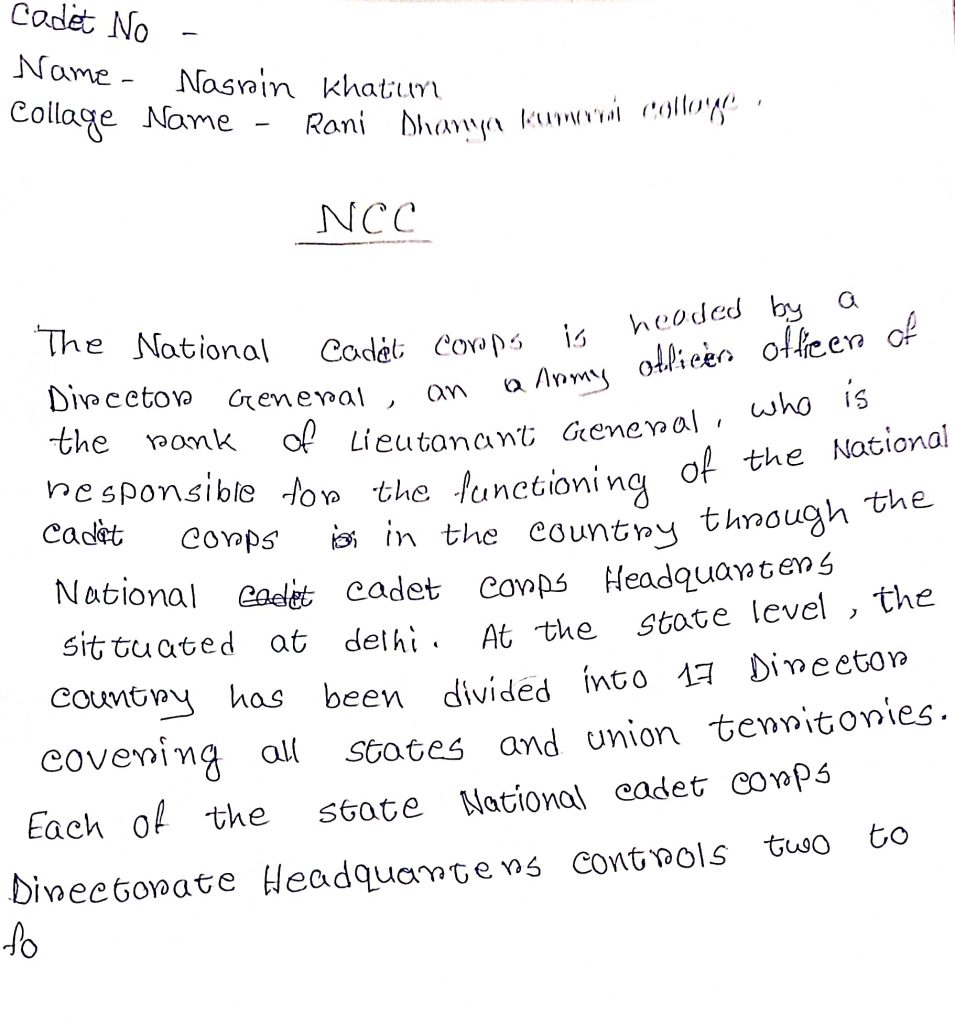 Cadet No -
Name - Nasrin Khatun
Collage Name - Rani Dhanya kumari college.
NCC
The National Cadet Corps is headed by a
Director General, an a Army officer officer of
the rank of Lieutanant General, who is
responsible for the functioning of the National
Cadet Corps is in the country through the
National cadet cadet corps Headquarters
sittuated at delhi. At the state level, the
country has been divided into 17 Director
covering all states and union territories.
Each of the state National cadet corps
Directorate Headquarters controls two to
fo